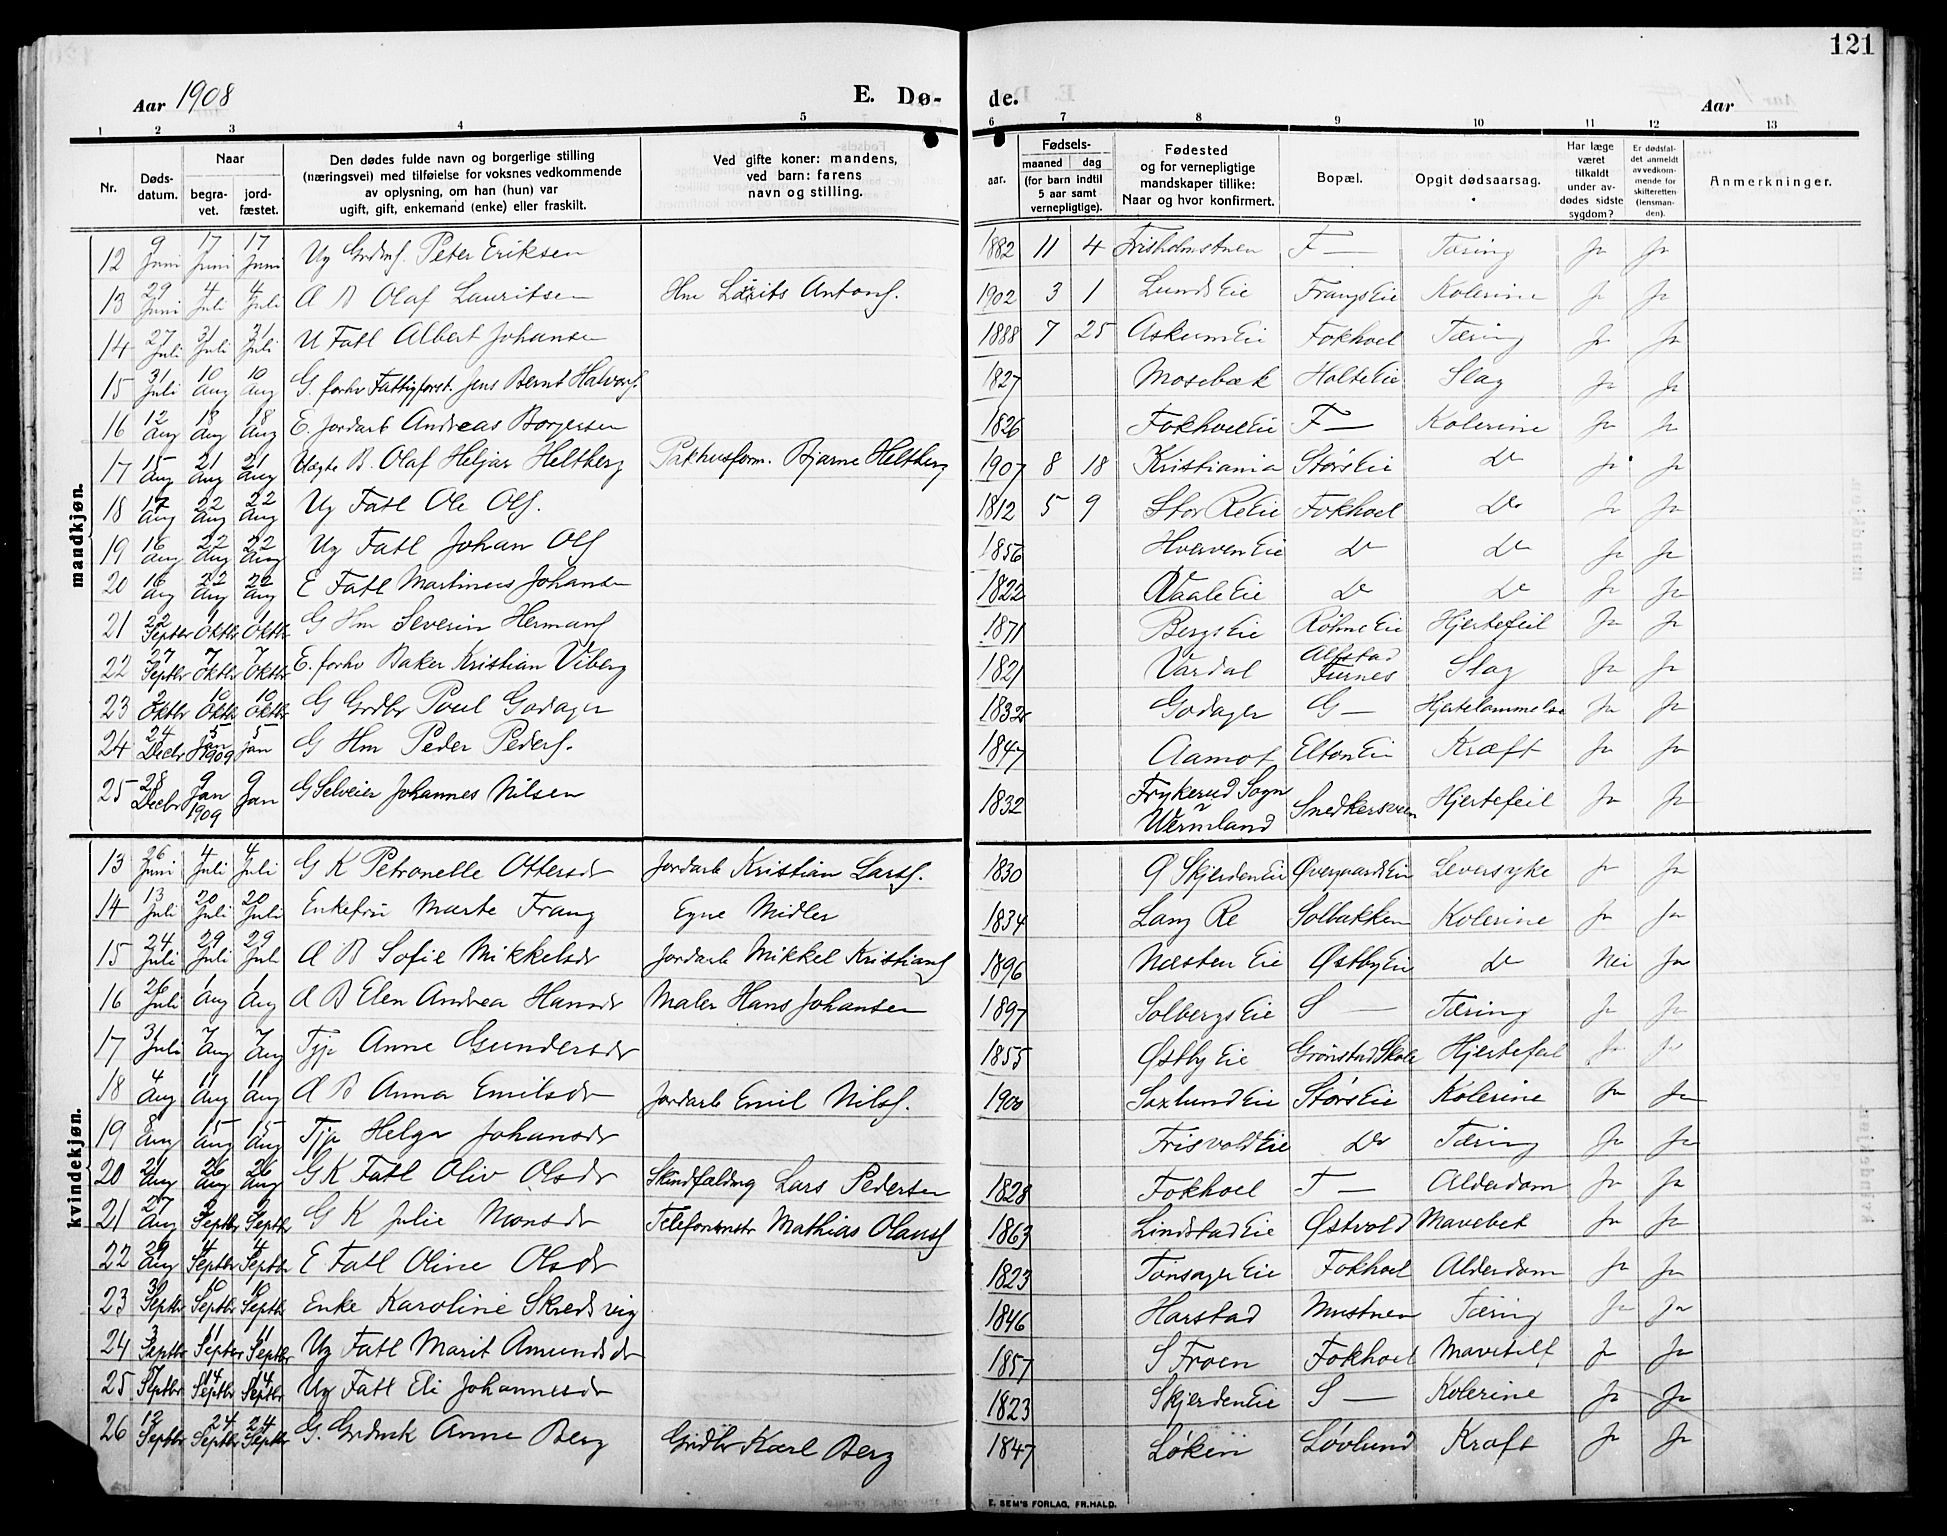 121
Aar 1908 E. Dø- de. Aar
1 2 3 4 5 6 7 8 9 10 11 12 13
Nr. Døds-datum. Naar begra-vet. jord-fæstet. Den dødes fulde navn og borgerlige stilling (næringsvei) med tilføielse for voksnes vedkommende av oplysning, om han (hun) var ugift, gift, enkemand (enke) eller fraskilt. Ved gifte koner: mandens, ved barn: farens navn og stilling. Fødsels- aar. maaned dag (for barn indtil 5 aar samt vernepligtige). Fødested og for vernepligtige mandskaper tillike: Naar og hvor konfirmert. Bopæl. Opgit dødsaarsag. Har læge været tilkaldt under av-dødes sidste sygdom? Er dødsfal-det anmeldt av vedkom-mende for skifteretten (lensman-den). Anmerkninger.
mandkjøn.
12 9 Juni 17 Juni 17 Juni Ug Grdmf. Peter Eriksen 1882 11 4 F — Tæring Ja Ja
13 29 Juni 4 Juli 4 Juli A B Olaf Lauritsen Hm Laurits Antonf. 1902 3 1 Lunds Eie Frangs Eie Kolerine Ja Ja
14 27 Juli 31 Juli 31 Juli U Fatl Albert Johansen 1888 7 25 Askum Eie Fokhoel Tæring Ja Ja
15 31 Juli 10 Aug 10 Aug G. forhv Fattigforst. Jens Bernt Halvorf. 1827 Mosebæk Holte Eie Slag Ja Ja
16 12 Aug 18 Aug 18 Aug E. Jordarb Andreas Borgersen 1826 Fokhoel Eie F — Kolerine Ja Ja
17 15 Aug 21 Aug 21 Aug Uægte B. Olaf Heljar Heltberg Pakhusform. Bjarne Heltberg 1907 8 18 Kristiania Størs Eie Do Ja Ja
18 17 Aug 22 Aug 22 Aug Ug Fatl Ole Olf. 1812 5 9 Stor Re Eie Fokhoel Do Ja Ja
19 16 Aug 22 Aug 22 Aug Ug Fatl Johan Olf 1856 Hverven Eie Do Do Ja Ja
20 16 Aug 22 Aug 22 Aug E Fatl Martinus Johansen 1822 Vaale Eie Do Do Ja Ja
21 22 Septbr 1 Oktbr 1 Oktbr G Hm Severin Hermanf 1871 Bergs Eie Røhne Eie Hjertefeil Ja Ja
22 27 Septbr 7 Oktbr 7 Oktbr E. forhv Baker Kristian Viberg 1821 Vardal Alfstad Furnes Slag Ja Ja
23 2 Oktbr 10 Oktbr 10 Oktbr G Grdbr Poul Godager 1832 Godager G — Hjertelammelse Ja Ja
24 24 Decbr 5 Jan 1909 5 Jan G Hm Peder Pederf. 1847 Aamot Elton Eie Kræft Ja Ja
25 28 Decbr 9 Jan 1909 9 Jan G Selveier Johannes Nilsen 1832 Frykerud Sogn Wermland Snedkersveen Hjertefeil Ja Ja
kvindekjøn.
13 26 Juni 4 Juli 4 Juli G K Petronelle Ottersdr Jordarb Kristian Larsf. 1830 Ø Skjerden Eie Øvergaards Eie Leversyke Ja Ja
14 13 Juli 20 Juli 20 Juli Enkefru Marte Frang Egne Midler 1834 Lang Re Solbakken Kolerine Ja Ja
15 24 Juli 29 Juli 29 Juli A B Sofie Mikkelsdr Jordarb Mikkel Kristianf 1896 Næsten Eie Østby Eie Do Nei Ja
16 26 Juli 1 Aug 1 Aug A B Elen Andrea Hansdr Maler Hans Johansen 1897 Solbergs Eie S — Tæring Ja Ja
17 31 Juli 7 Aug 7 Aug Tjp Anne Gundersdr 1855 Østby Eie Grønstad Skole Hjertefeil Ja Ja
18 4 Aug 11 Aug 11 Aug A B Anna Emilsdr Jordarb Emil Nilsf. 1900 Saxlund Eie Størs Eie Kolerine Ja Ja
19 8 Aug 15 Aug 15 Aug Tjp Helga Johansdr Frisvold Eie Do Tæring Ja Ja
20 21 Aug 26 Aug 26 Aug G K Fatl Oliv Olsdr Skindfældmg Lars Pedersen 1828 Fokhoel F — Alderdom Ja Ja
21 27 Aug 2 Septbr 2 Septbr G K Julie Monsdr Telefonmstr Mathias Olausf 1863 Lindstad Eie Østvold Mavebet Ja Ja
22 29 Aug 4 Septbr 4 Septbr E. Fatl Oline Olsdr 1823 Tønsager Eie Fokhoel Alderdom Ja Ja
23 3 Septbr 10 Septbr 10 Septbr Enke Karoline Skredsvig 1846 Harstad Mustuen Tæring Ja Ja
24 3 Septbr 11 Septbr 11 Septbr Ug Fatl Marit Amundsdr 1857 S Froen Fokhoel Ja Ja
25 7 Septbr 14 Septbr 14 Septbr Ug Fatl Eli Johannesdr 1823 Skjerden Eie S — Kolerine Ja Ja
26 12 Septbr 24 Septbr 24 Septbr G. Grdmk Anne Berg Grdbr Karl Berg 1847 Løken Løvlund Kræft Ja Ja
E. SEM'S FORLAG, FR.HALD.